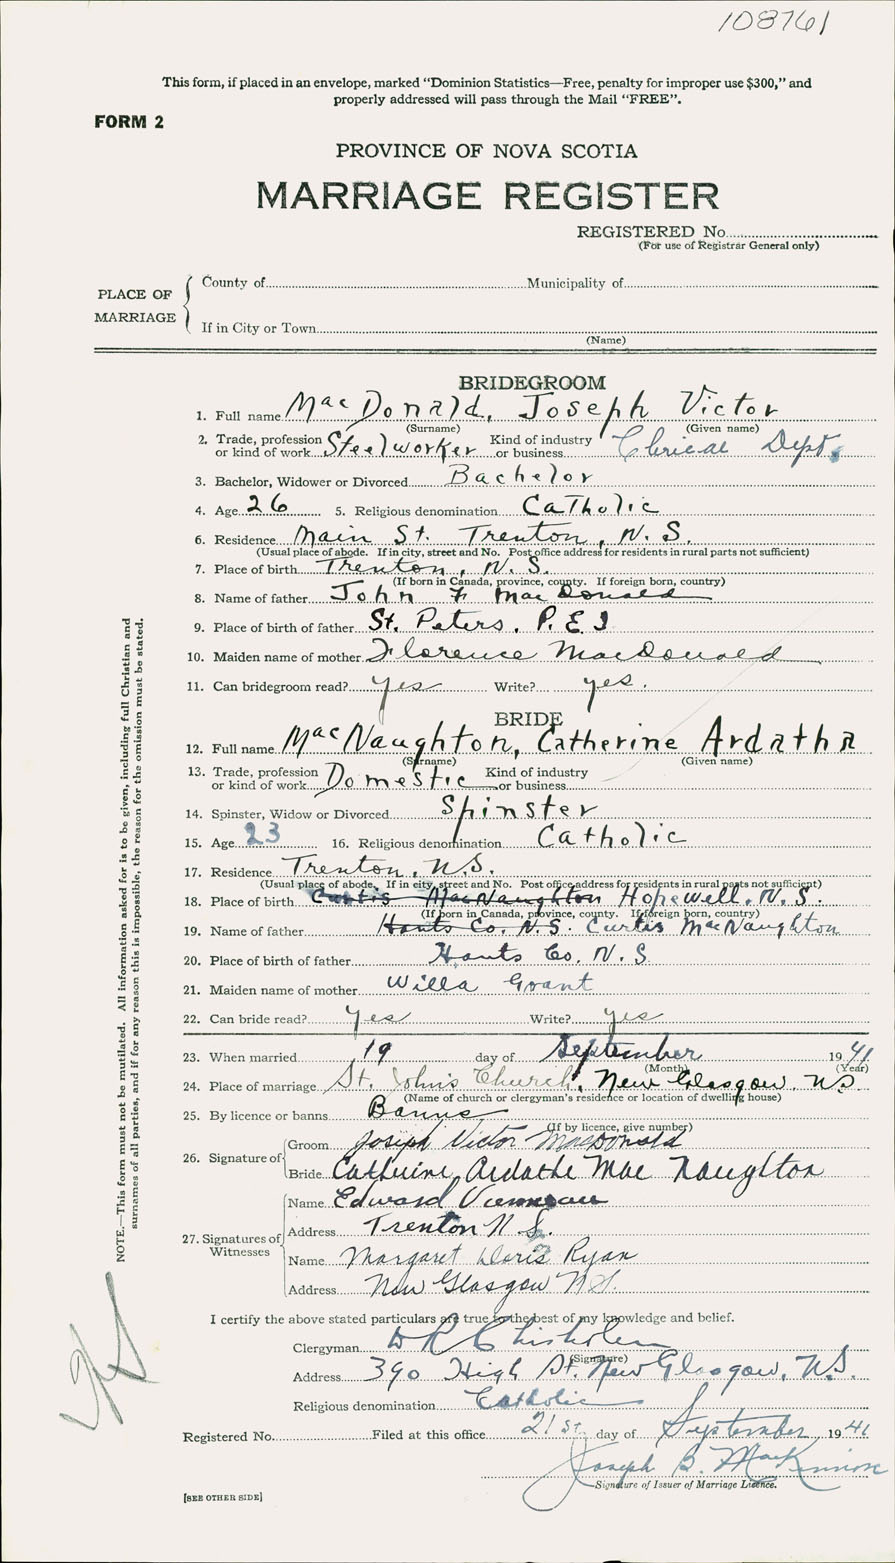 108761
This form, if placed in an envelope, marked “Dominion Statistics—Free, penalty for improper use $300,” and
properly addressed will pass through the Mail “FREE”.
FORM 2
PROVINCE OF NOVA SCOTIA
MARRIAGE REGISTER
REGISTERED No.
(For use of Registrar General only)
PLACE OF MARRIAGE
County of Municipality of
If in City or Town
(Name)
BRIDEGROOM
1. Full name MacDonald, Joseph Victor
(Surname) (Given name)
2. Trade, profession or kind of work Steelworker Kind of industry or business Clerical Dept.
3. Bachelor, Widower or Divorced Bachelor
4. Age 26 5. Religious denomination Catholic
6. Residence Main St. Trenton, N.S.
(Usual place of abode. If in city, street and No. Post office address for residents in rural parts not sufficient)
7. Place of birth Trenton, N.S.
(If born in Canada, province, county. If foreign born, country)
8. Name of father John F MacDonald
9. Place of birth of father St. Peters, P.E.I
10. Maiden name of mother Florence MacDonald
11. Can bridegroom read? yes Write? yes.
BRIDE
12. Full name MacNaughton, Catherine Ardatha
(Surname) (Given name)
13. Trade, profession or kind of work Domestic Kind of industry or business
14. Spinster, Widow or Divorced Spinster
15. Age 23 16. Religious denomination Catholic
17. Residence Trenton, N.S.
(Usual place of abode. If in city, street and No. Post office address for residents in rural parts not sufficient)
18. Place of birth Curtis MacNaughton Hopewell, N.S.
(If born in Canada, province, county. If foreign born, country)
19. Name of father Hants Co. N.S. Curtis MacNaughton
20. Place of birth of father Hants Co. N.S
21. Maiden name of mother Willa Grant
22. Can bride read? Yes Write? yes
23. When married 19 day of September 1941
(Month) (Year)
24. Place of marriage St. John's Church, New Glasgow, NS
(Name of church or clergyman's residence or location of dwelling house)
25. By licence or banns Banns
(If by licence, give number)
26. Signature of Groom Joseph Victor MacDonald
Bride Catherine Ardathe MacNaughton
27. Signatures of Witnesses Name Edward
Address Trenton N.S.
Name Margaret Doris Ryan
Address New Glasgow N.S.
I certify the above stated particulars are true to the best of my knowledge and belief.
Clergyman D R Chisholm
(Signature)
Address 390 High St. New Glasgow, N.S.
Religious denomination Catholic
Registered No. Filed at this office 21st day of September 1941
Joseph B. MacKinnon
Signature of Issuer of Marriage Licence.
[SEE OTHER SIDE]
NOTE.—This form must not be mutilated. All information asked for is to be given, including full Christian and
surnames of all parties, and if for any reason this is impossible, the reason for the omission must be stated.